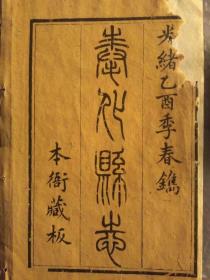 光緒乙酉季春鐫
奉化縣志
本衙藏板